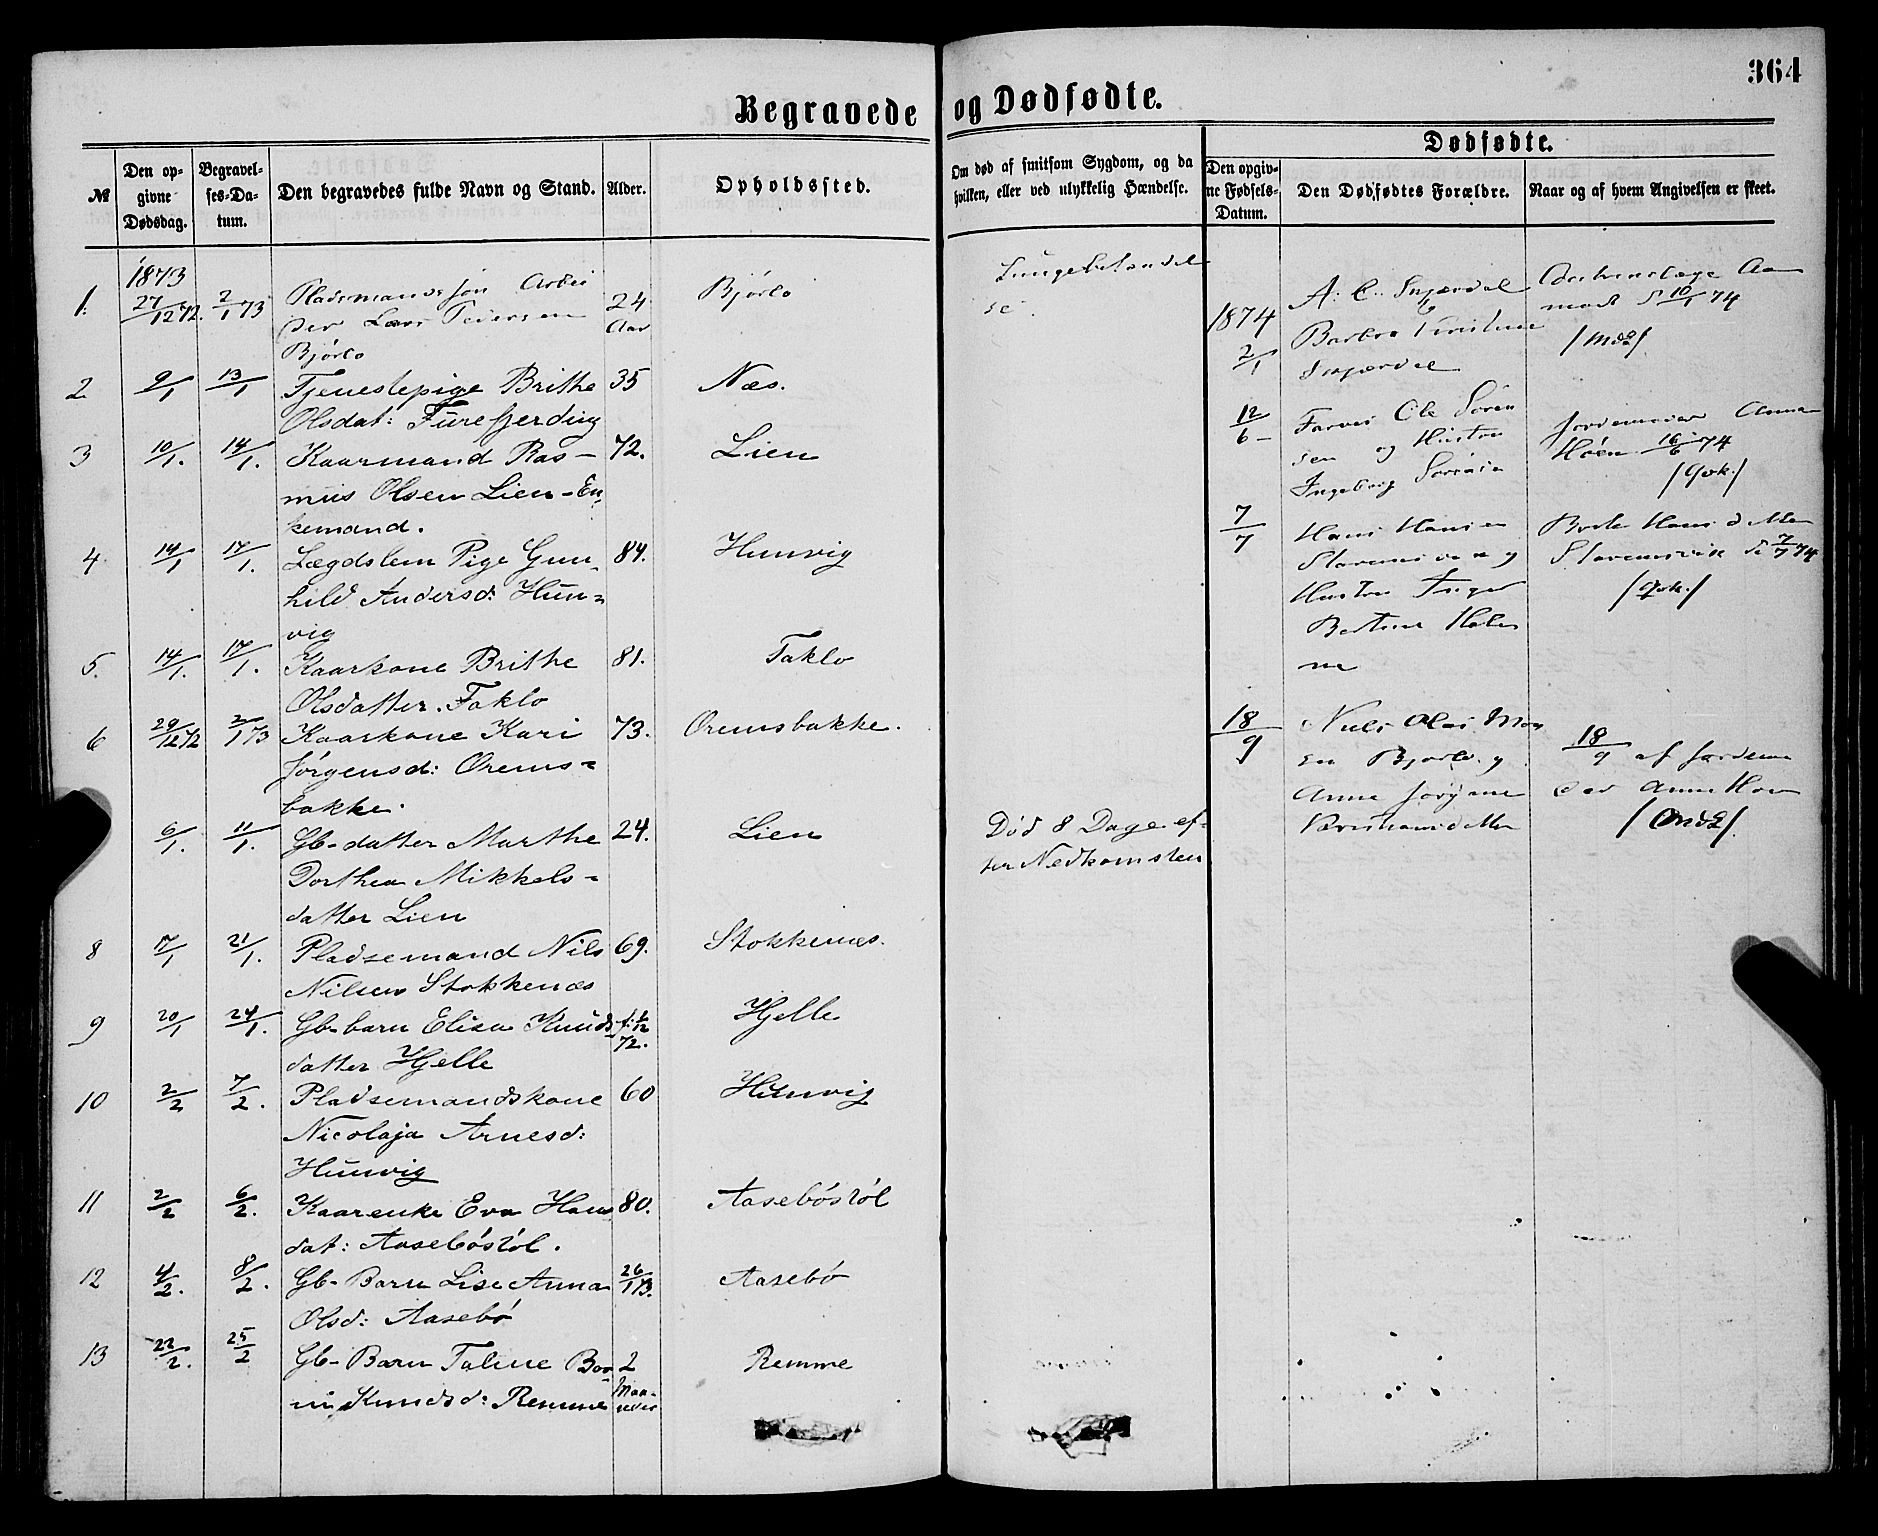 364
Begravede og Dødfødte.
№
Den opgivne Dødsdag.
Begravelses-Datum.
Den begravedes fulde Navn og Stand.
Alder.
Opholdssted.
Om død af smitsom Sygdom, og da hvilken, eller ved ulykkelig Hændelse.
Dødfødte.
Den opgivne Fødsels-Datum.
Den Dødfødtes Forældre.
Naar og af hvem Angivelsen er skeet.
1873
1. 27/12 72. 2/1 73 Pladsmandssøn Arbei 24 Bjørlo
der Lars Peiersen Aar
Bjørlo
2 9/1 13/1 Tjenestepige Brithe 35 Næs.
Olsdat: Furefjerding
3 10/1. 14/1. Kaarmand Ras- 72. Lien
mus Olsen Lien-En
kemand.
4 14/1 17/1. Lægdslem Pige Gun- 84. Hunvig
hild Andersd: Hun-
vig
5. 14/1. 17/1. Kaarkone Brithe 81. Taklo
Olsdatter. Taklo
6 29/12 72 2/1 73 Kaarkone Kari 73. Oremsbakke.
Jørgensd: Orems-
bakke.
6/1. 11/1. Gb-datter Marthe 24. Lien Død 8 Dage ef-
Dorthea Mikkels- ter Nedkomsten
datter Lien
8 17/1 21/1. Pladsemand Nils 69. Stokkenæs.
Nilsen Stokkenæs
9 20/1 24/1. Gb-barn Elisa Knuds f: 1/12 Hjelle
datter Hjelle 72.
10 2/2 7/2. Pladsemandskone 60 Hunvig
Nicolaja Arnesd:
Hunvig
11 2/2 6/2. Kaarenke Eva Hans 80. Aasebøstøl
dat: Aasebøstøl.
12 4/2. 8/2. Gb-Barn Lise Anna 26/1 73. Aasebø
Olsd: Aasebø
13 22/2. 25/2 Gb-Barn Taline Bor 2 Remme
ni Knudsd: Remme Maa-
neder
Lungebetændel
se.
1874 2/1
Barbra Kristine
10/1 74
12/6
Ole Sören
sen og Hustru
Ingeborg
Jordemoder Anna
Hoen 16/6 74
7/7
Hans Hansen
Hustru Inger
7/7 74
18/9
Niels Olai Mon
en Bjørlo og
Anne Jørgine
18/9 af Jordemo
der Anne Hoen